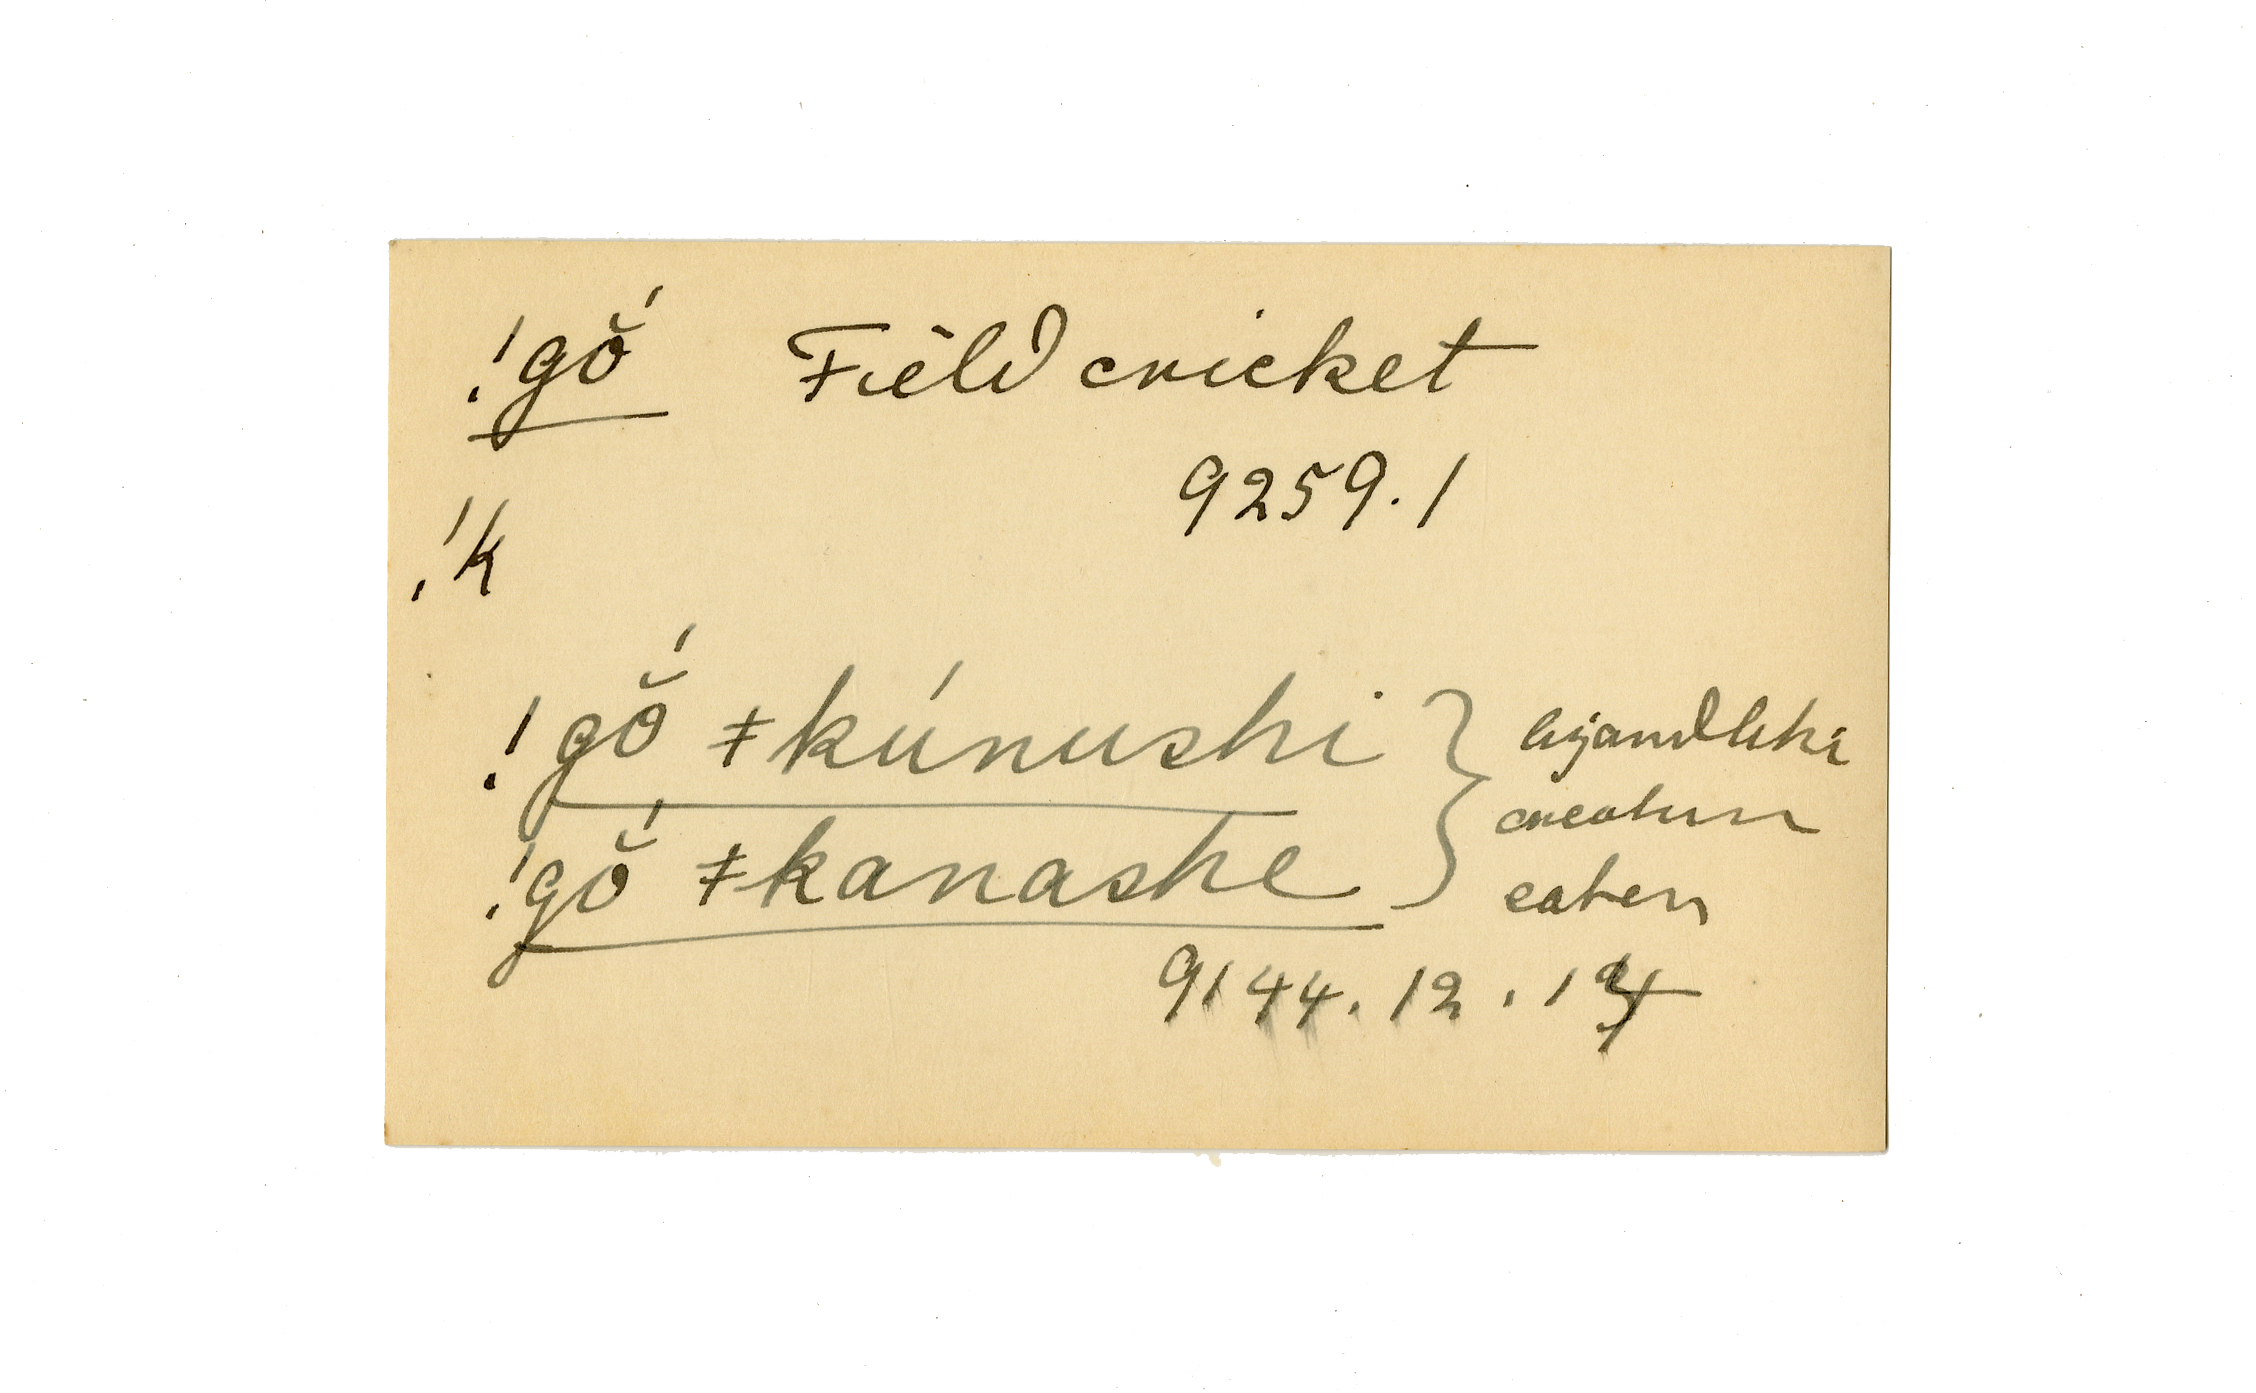 !gŏ́ Field cricket
9259.1
!k
!gŏ́ ǂkúnushi
creature
!gŏ́ ǂkanashe
eaten
9144.12.1